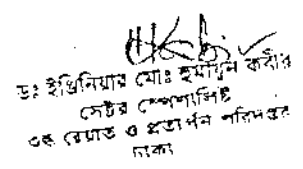 ডঃ ইঞ্জিনিয়ার মোঃ হুমায়ুন কবীর
সেক্টর স্পেশালিষ্ট
শুল্ক রেয়াত ও প্রত্যর্পন পরিদপ্তর
ঢাকা